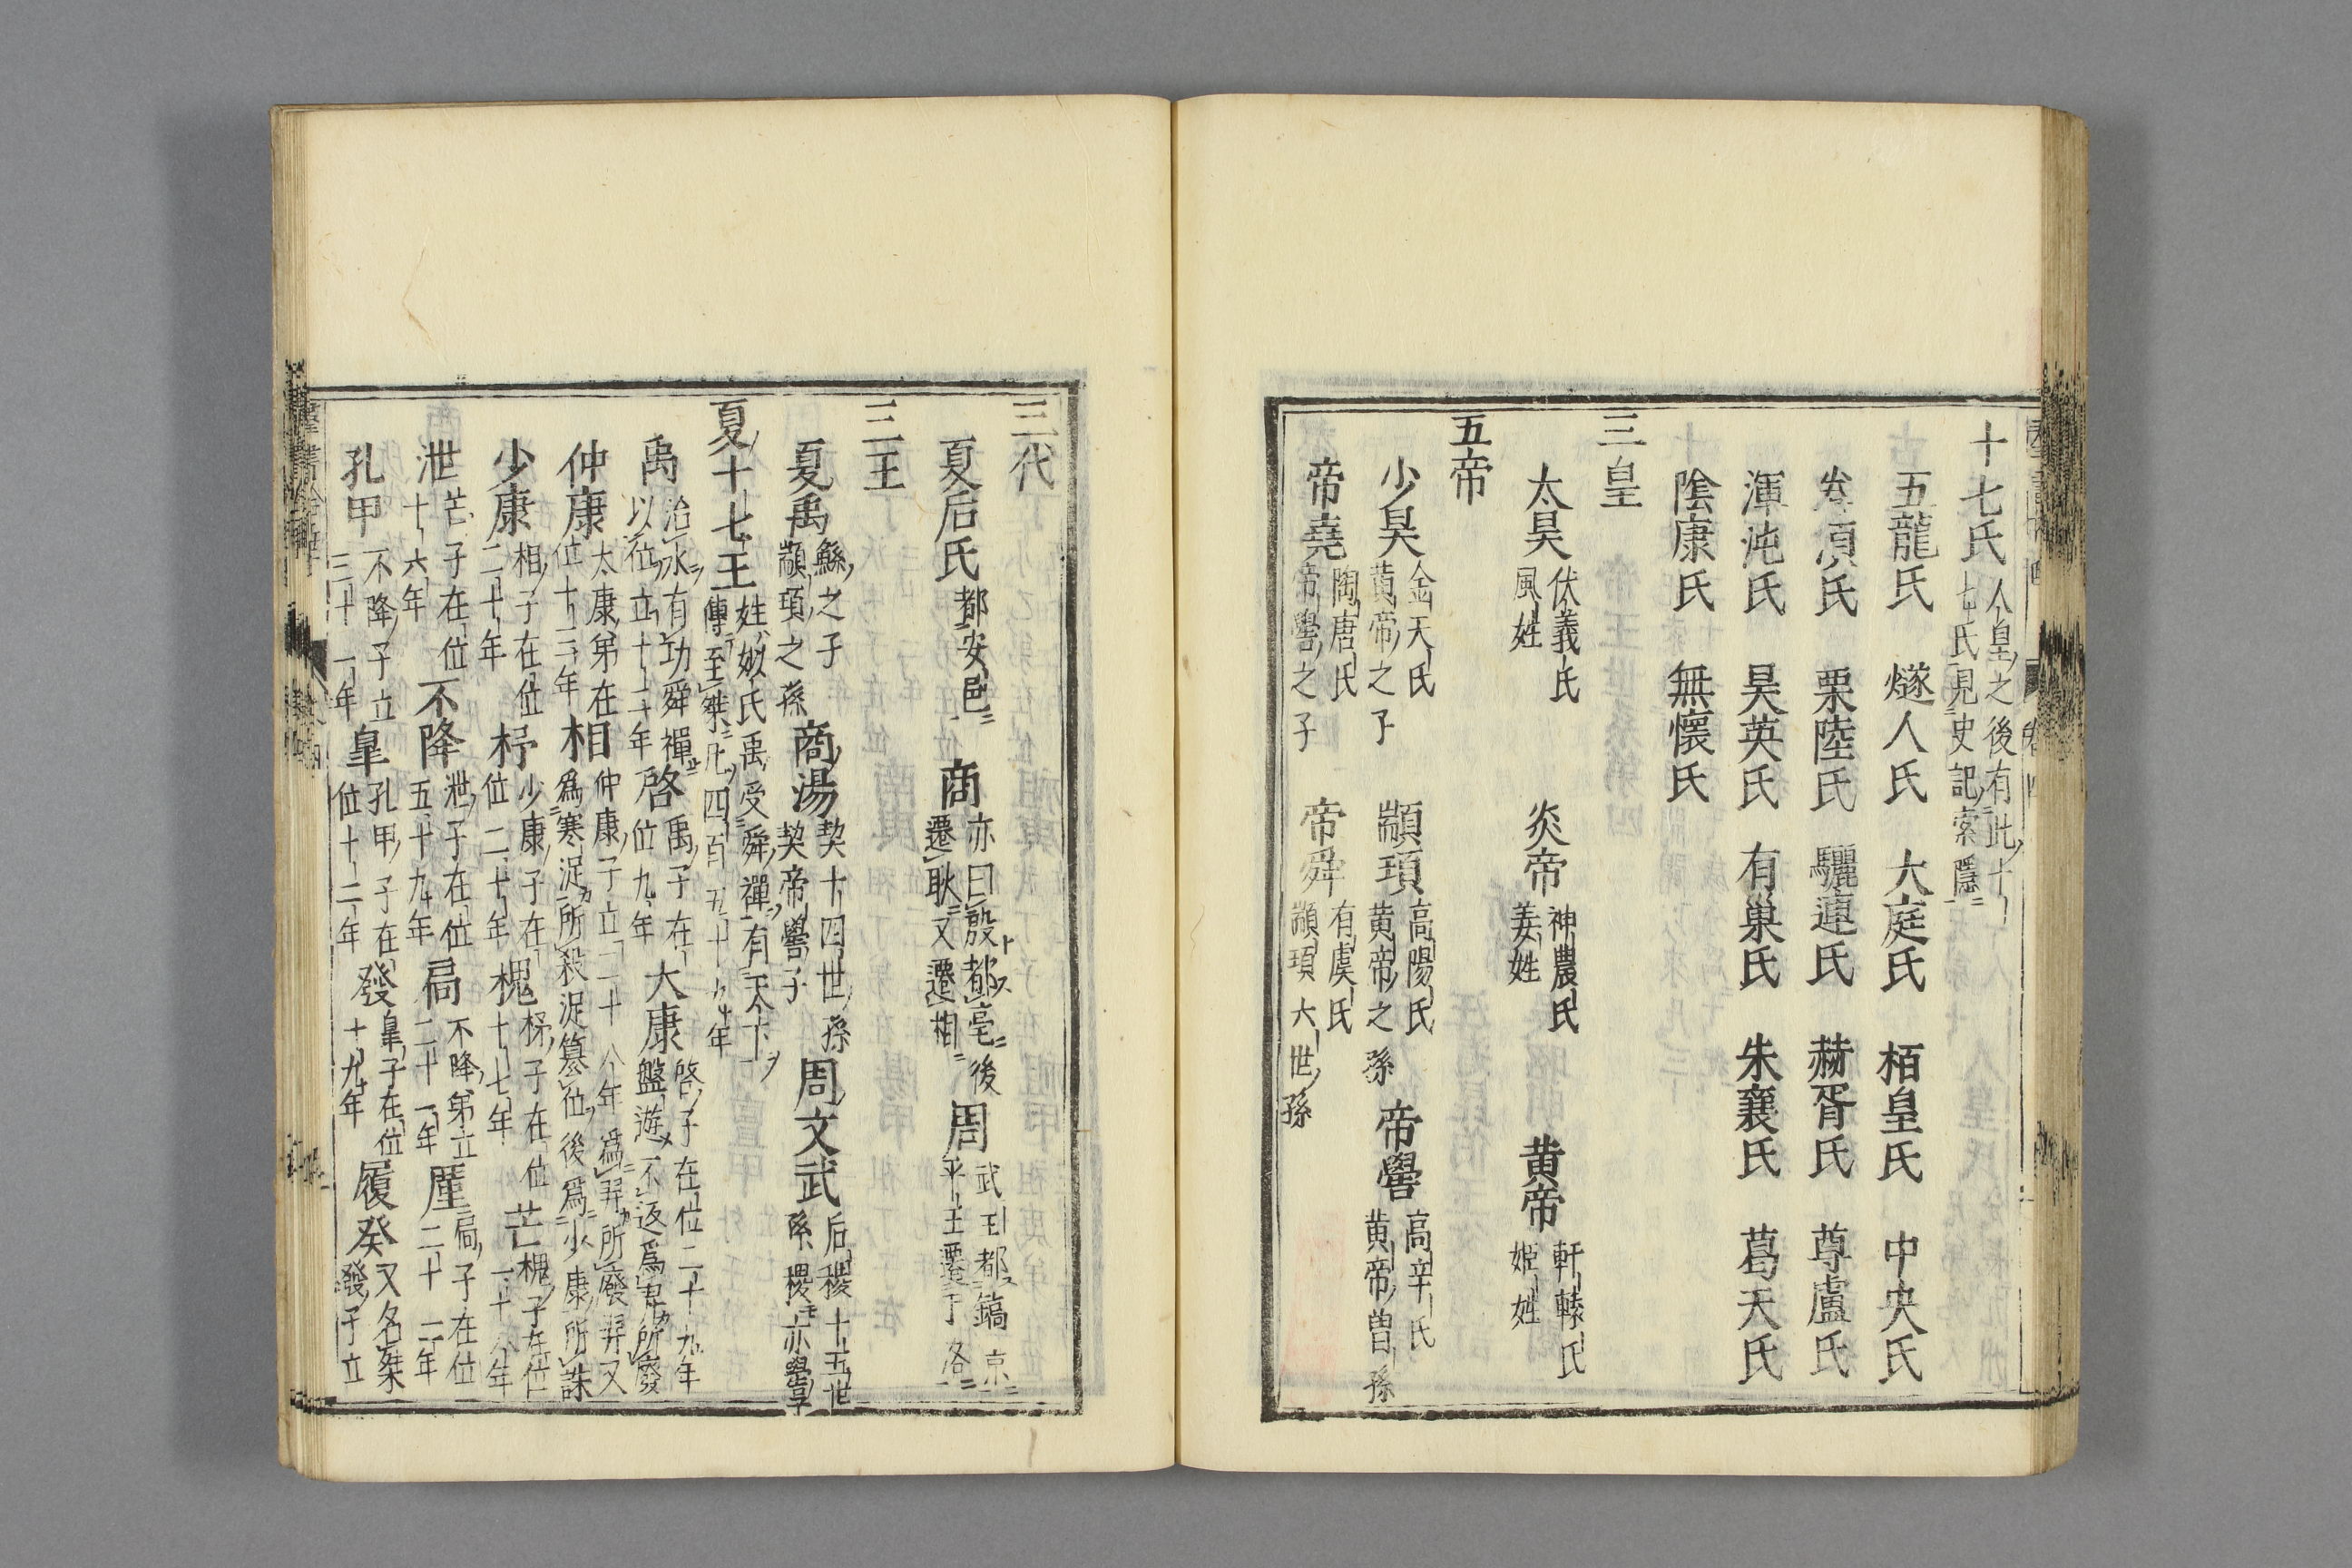 十七氏 人皇之後有此十七氏見史記索隱
五龍氏 燧人氏 大庭氏 栢皇氏 中央氏
須氏 栗陸氏 驪連氏 赫胥氏 尊盧氏
渾沌氏 昊英氏 有巢氏 朱襄氏 葛天氏
陰康氏 無懷氏
三皇
太昊 伏義氏風姓 炎帝 神農氏姜姓 黄帝 軒轅氏姫姓
五帝
少昊 金天氏黄帝之子 顓頊 高陽氏黄帝之孫 帝嚳 高辛氏黄帝曾孫
帝堯 陶唐氏帝嚳之子 帝舜 有虞氏顓頊六世孫
三代
夏后氏 都安邑 商 亦曰殷都亳後遷耿又遷相 周 武王都鎬京平王遷于洛
三王
夏禹 鯀之子顓頊之孫 商湯 契十四世孫契帝嚳子 周文武 后稷十五世孫稷亦嚳子
夏十七王 姓姒氏禹受舜禪有天下傳至桀凡四百五十九年
禹 治水有功舜禪以位立十二年 啓 禹子在位九年 大康 啓子在位二十九年盤遊不返爲羿所廢
仲康 太康弟在位十三年 相 仲康子立二十八年爲羿所廢羿又爲寒浞所殺浞簒位後爲少康所誅
少康 相子在位二十年 杼 少康子在位二十年 槐 杼子在位十七年 芒 槐子在位十八年
泄 芒子在位十六年 不降 泄子在位五十九年 扃 不降弟立二十一年 廑 扃子在位二十二年
孔甲 不降子立三十一年 皐 孔甲子在位十二年 發 皐子在位十九年 履癸 又名桀發子立